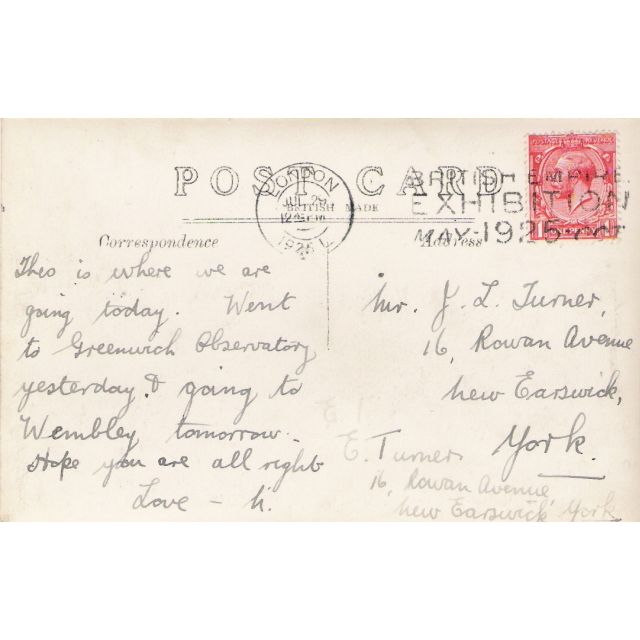 POST CARD
BRITISH MADE
LONDON
JUL 29
1925
BRITISH EMPIRE
EXHIBITION
MAY-1925-OCT
Correspondence
Address
This is where we are
going today. Went
to Greenwich Observatory
yesterday & going to
Wembley tomorrow.
Hope you are all right
Love -
Mr. J. L. Turner,
16, Rowan Avenue
New Earswick,
York.
E. Turner
16, Rowan Avenue
New Earswick York